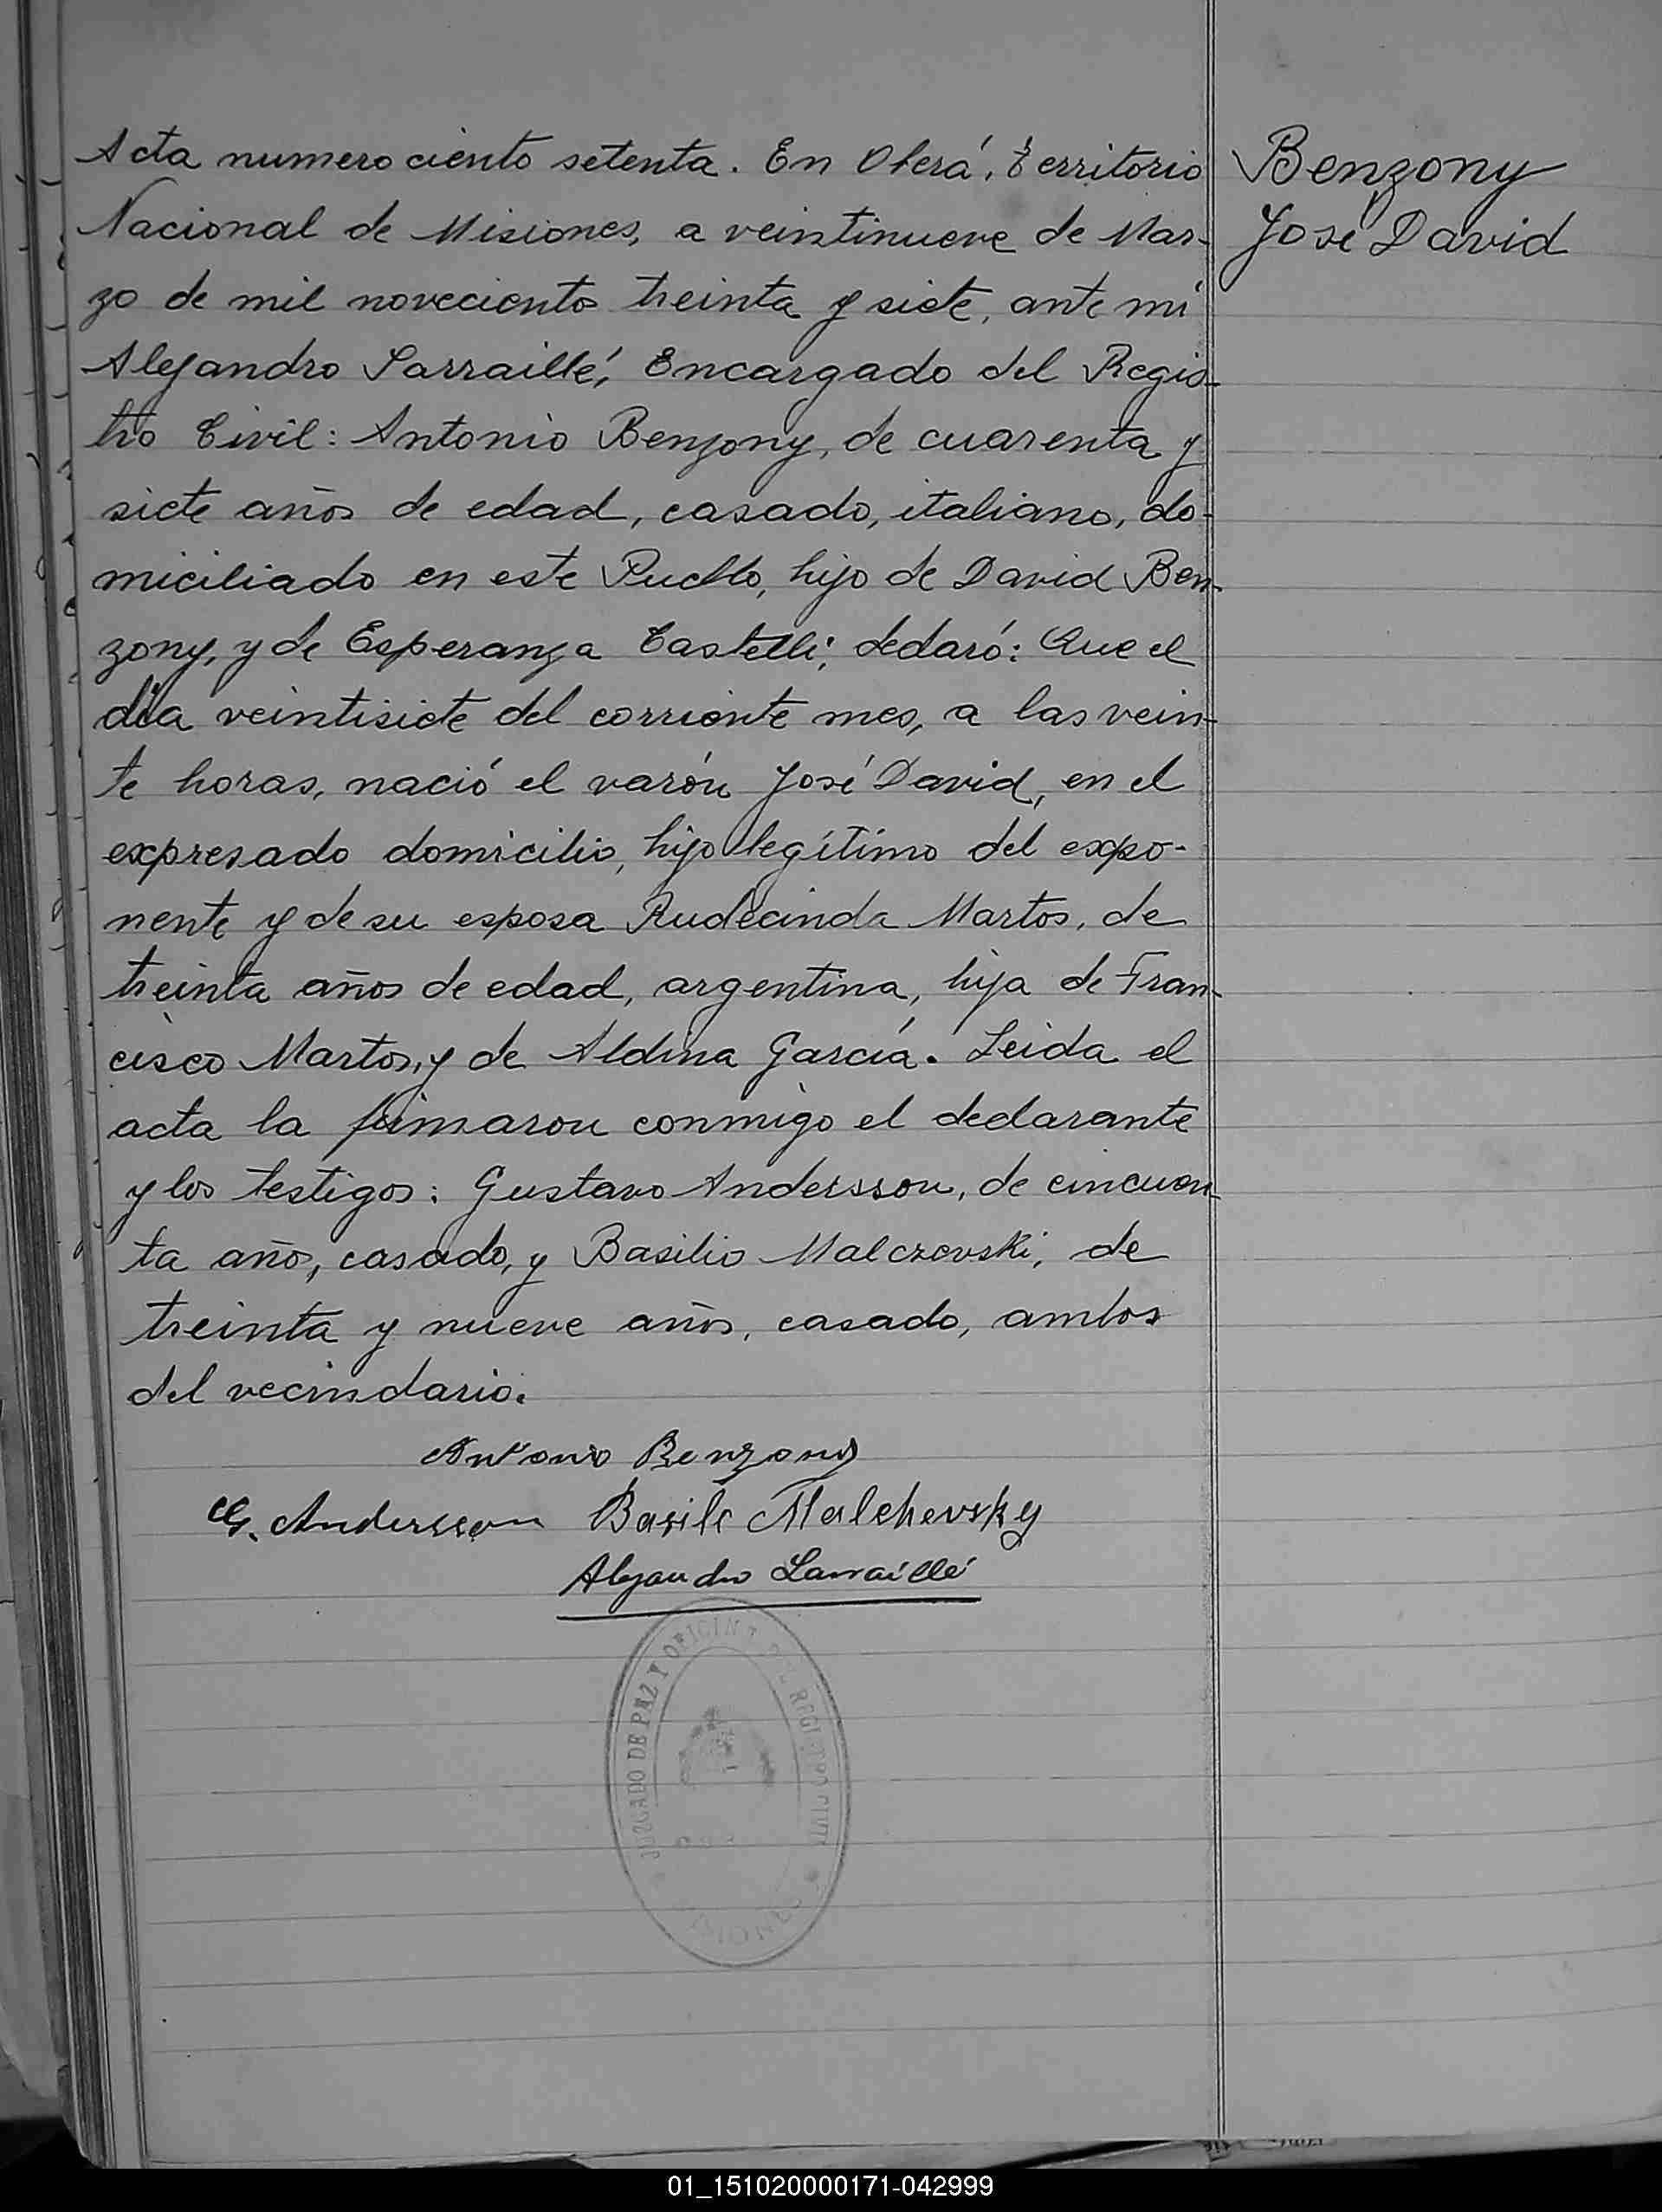 Acta numero ciento setenta. En Oberá, Territorio
Nacional de Misiones, a veintinueve de Mar-
zo de mil noveciento treinta y siete, ante mi
Alejandro Larraillé, Encargado del Regis-
tro Civil: Antonio Benzony, de cuarenta y
siete años de edad, casado, italiano, do-
miciliado en este Pueblo, hijo de David Ben-
zony, y de Esperanza Castelli; declaró: Que el
día veintisiete del corriente mes, a las vein-
te horas, nació el varón José David, en el
expresado domicilio, hijo legítimo del expo-
nente y de su esposa Rudecinda Martos, de
treinta años de edad, argentina, hija de Fran-
cisco Martos, y de Aldina García. Leida el
acta la firmaron conmigo el declarante
y los testigos: Gustavo Andersson, de cincuen-
ta año, casado, y Basilio Malczevski, de
treinta y nueve años, casado, ambos
del vecindario.
Antonio Benzony
G. Andersson Basile Malchevsky
Alejandro Larraillé
JUZGADO DE PAZ Y OFICINA DEL REGISTRO CIVIL
Benzony
José David
01_151020000171-042999